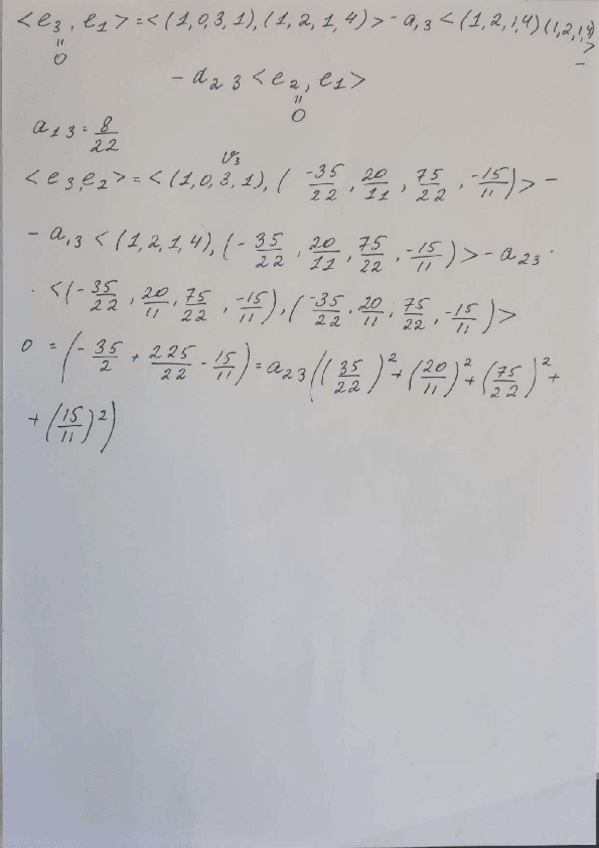 <e₃, e₁> = <(1,0,3,1), (1,2,1,4)> - a₁₃ <(1,2,1,4)(1,2,1,4)> -
"
0
- a₂₃ <e₂, e₁>
"
0
a₁₃ = 8/22
v₃
<e₃,e₂> = <(1,0,3,1), (-35/22, 20/11, 75/22, -15/11)> -
- a₁₃ <(1,2,1,4), (-35/22, 20/11, 75/22, -15/11)> - a₂₃ ·
· <(-35/22, 20/11, 75/22, -15/11), (-35/22, 20/11, 75/22, -15/11)>
0 = (-35/2 + 225/22 - 15/11) = a₂₃((35/22)² + (20/11)² + (75/22)² +
+ (15/11)²)